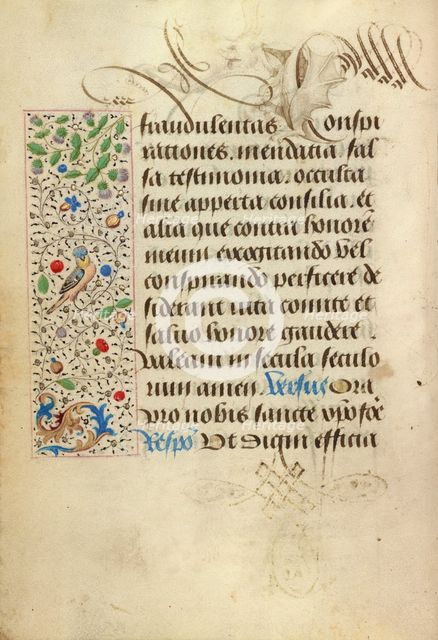 fraudulentas Conspi
rationes. mendatia. fal
sa testimonia. occulta
siue apperta consilia. et
alia que contra honore
meum exogitando vel
conspirando perficere de
siderant vita comite et
saluo honore gaudere
valeam in secula seculo
rum amen. Versus Ora
pro nobis sancte xp̄ofore
Respō Vt Digni efficia
heritage